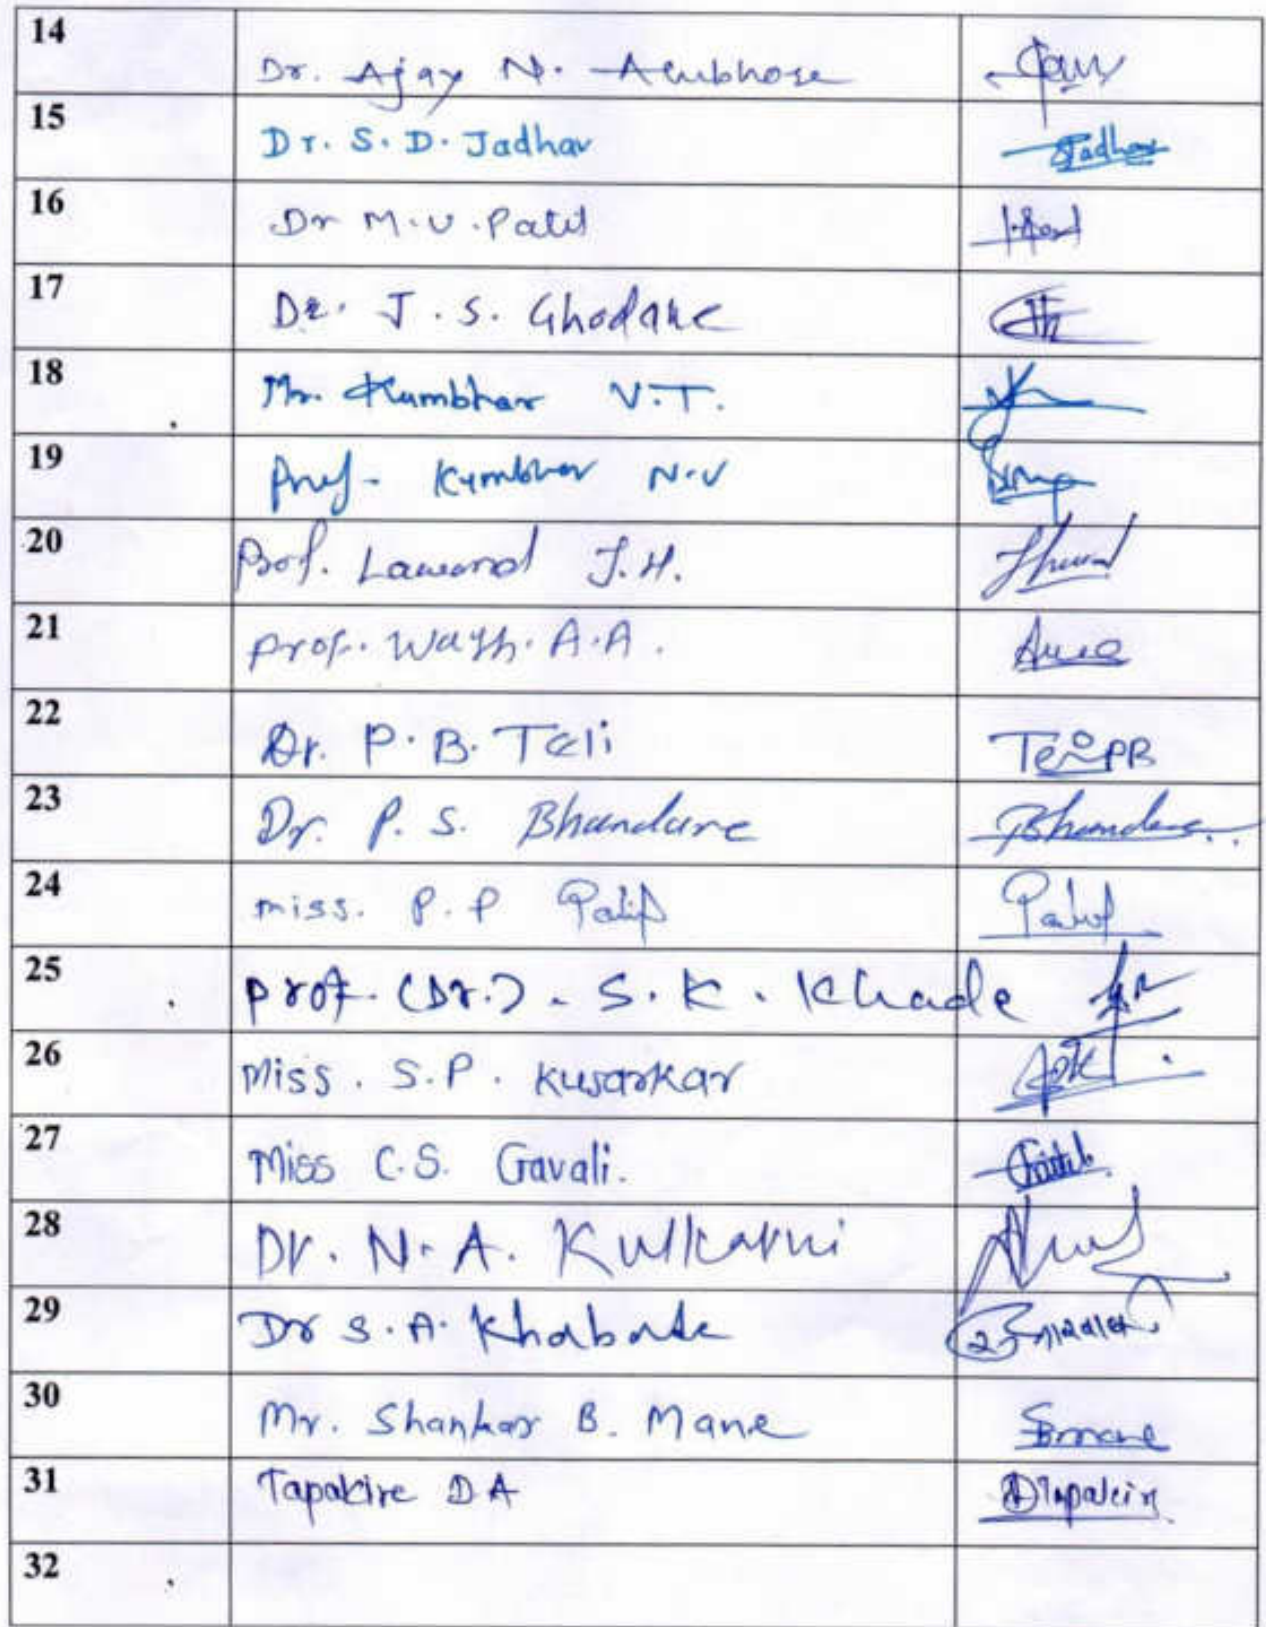 14 Dr. Ajay N. Ambhore
15 Dr. S. D. Jadhav Jadhav
16 Dr M.V. Patil
17 Dr. J. S. Ghodake
18 Mr. Kumbhar V.T.
19 Prof. Kumbhar N.V
20 Prof. Lawand J.H.
21 Prof. Wagh. A.A.
22 Dr. P. B. Teli Teli PB
23 Dr. P. S. Bhandare Bhandare
24 miss. P. P Patil Patil
25 Prof. (Dr.). S. K. Khade
26 Miss. S.P. Kusarkar
27 Miss C.S. Gavali.
28 Dr. N. A. Kulkarni
29 Dr S. A. Khabade
30 Mr. Shankar B. Mane SBmane
31 Tapakire D A DTapakire
32